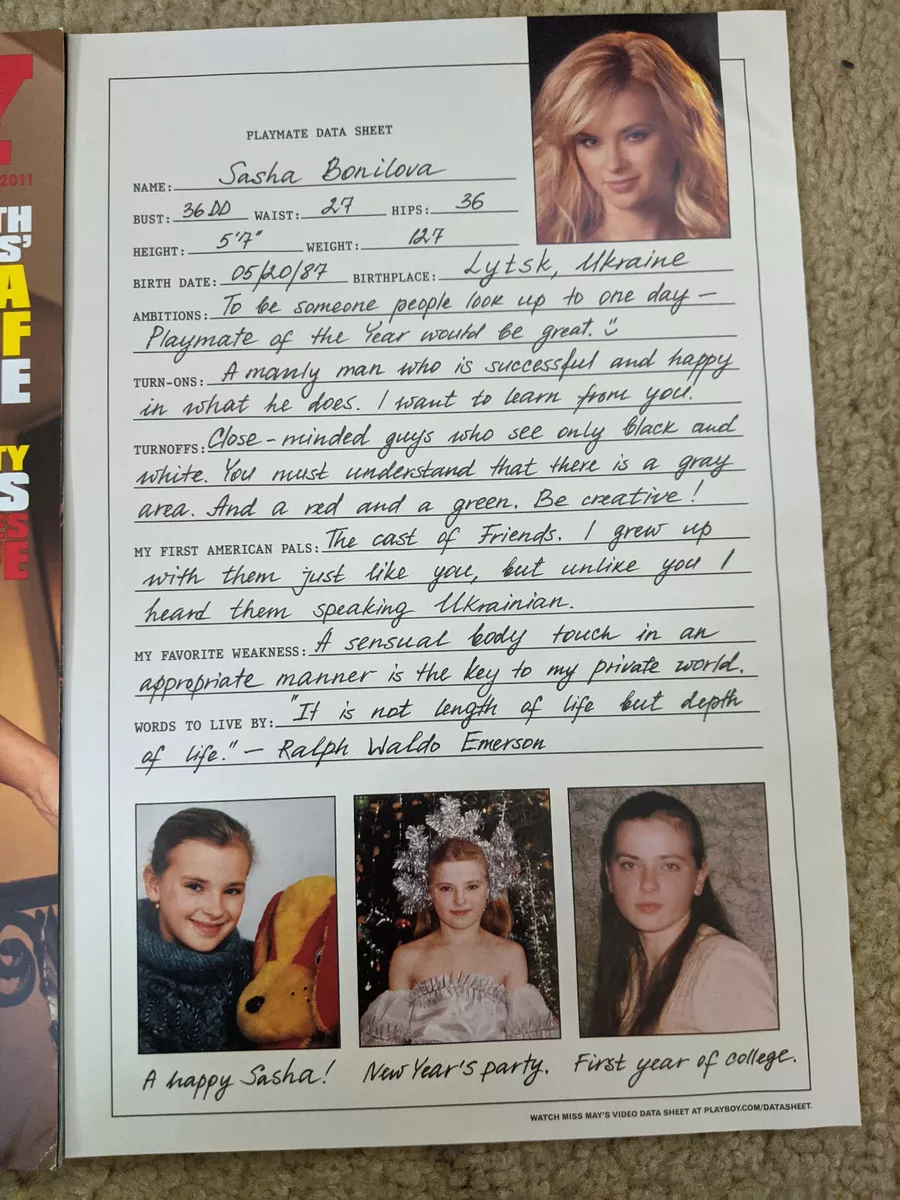 Y
2011
TH
S'
A
F
E
TY
S
ES
E
PLAYMATE DATA SHEET
NAME: Sasha Bonilova
BUST: 36DD WAIST: 27 HIPS: 36
HEIGHT: 5'7" WEIGHT: 127
BIRTH DATE: 05/20/87 BIRTHPLACE: Lytsk, Ukraine
AMBITIONS: To be someone people look up to one day –
Playmate of the Year would be great. ☺
TURN-ONS: A manly man who is successful and happy
in what he does. I want to learn from you.
TURNOFFS: Close-minded guys who see only black and
white. You must understand that there is a gray
area. And a red and a green. Be creative!
MY FIRST AMERICAN PALS: The cast of Friends. I grew up
with them just like you, but unlike you I
heard them speaking Ukrainian.
MY FAVORITE WEAKNESS: A sensual body touch in an
appropriate manner is the key to my private world.
WORDS TO LIVE BY: "It is not length of life but depth
of life." – Ralph Waldo Emerson
A happy Sasha! New Year's party. First year of college.
WATCH MISS MAY'S VIDEO DATA SHEET AT PLAYBOY.COM/DATASHEET.